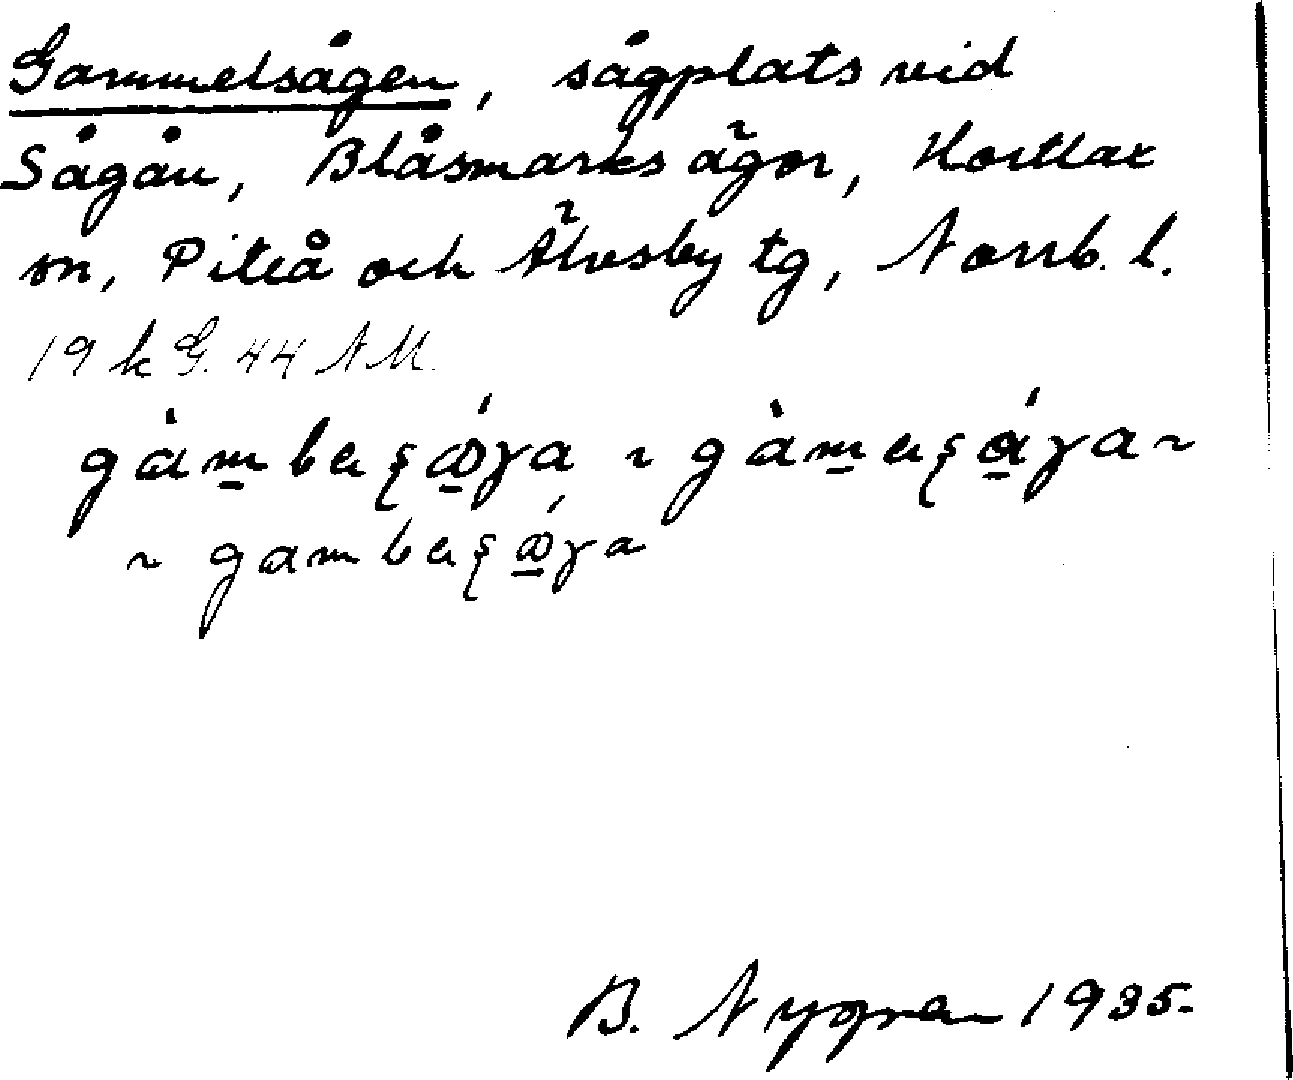 Gammelsågen, sågplats vid
Sågån, Blåsmarks ägor, Hortlax
sn, Piteå och Älvsby tg, Norrb. l.
19 k G. 44 N M.
B. Nygren 1935.